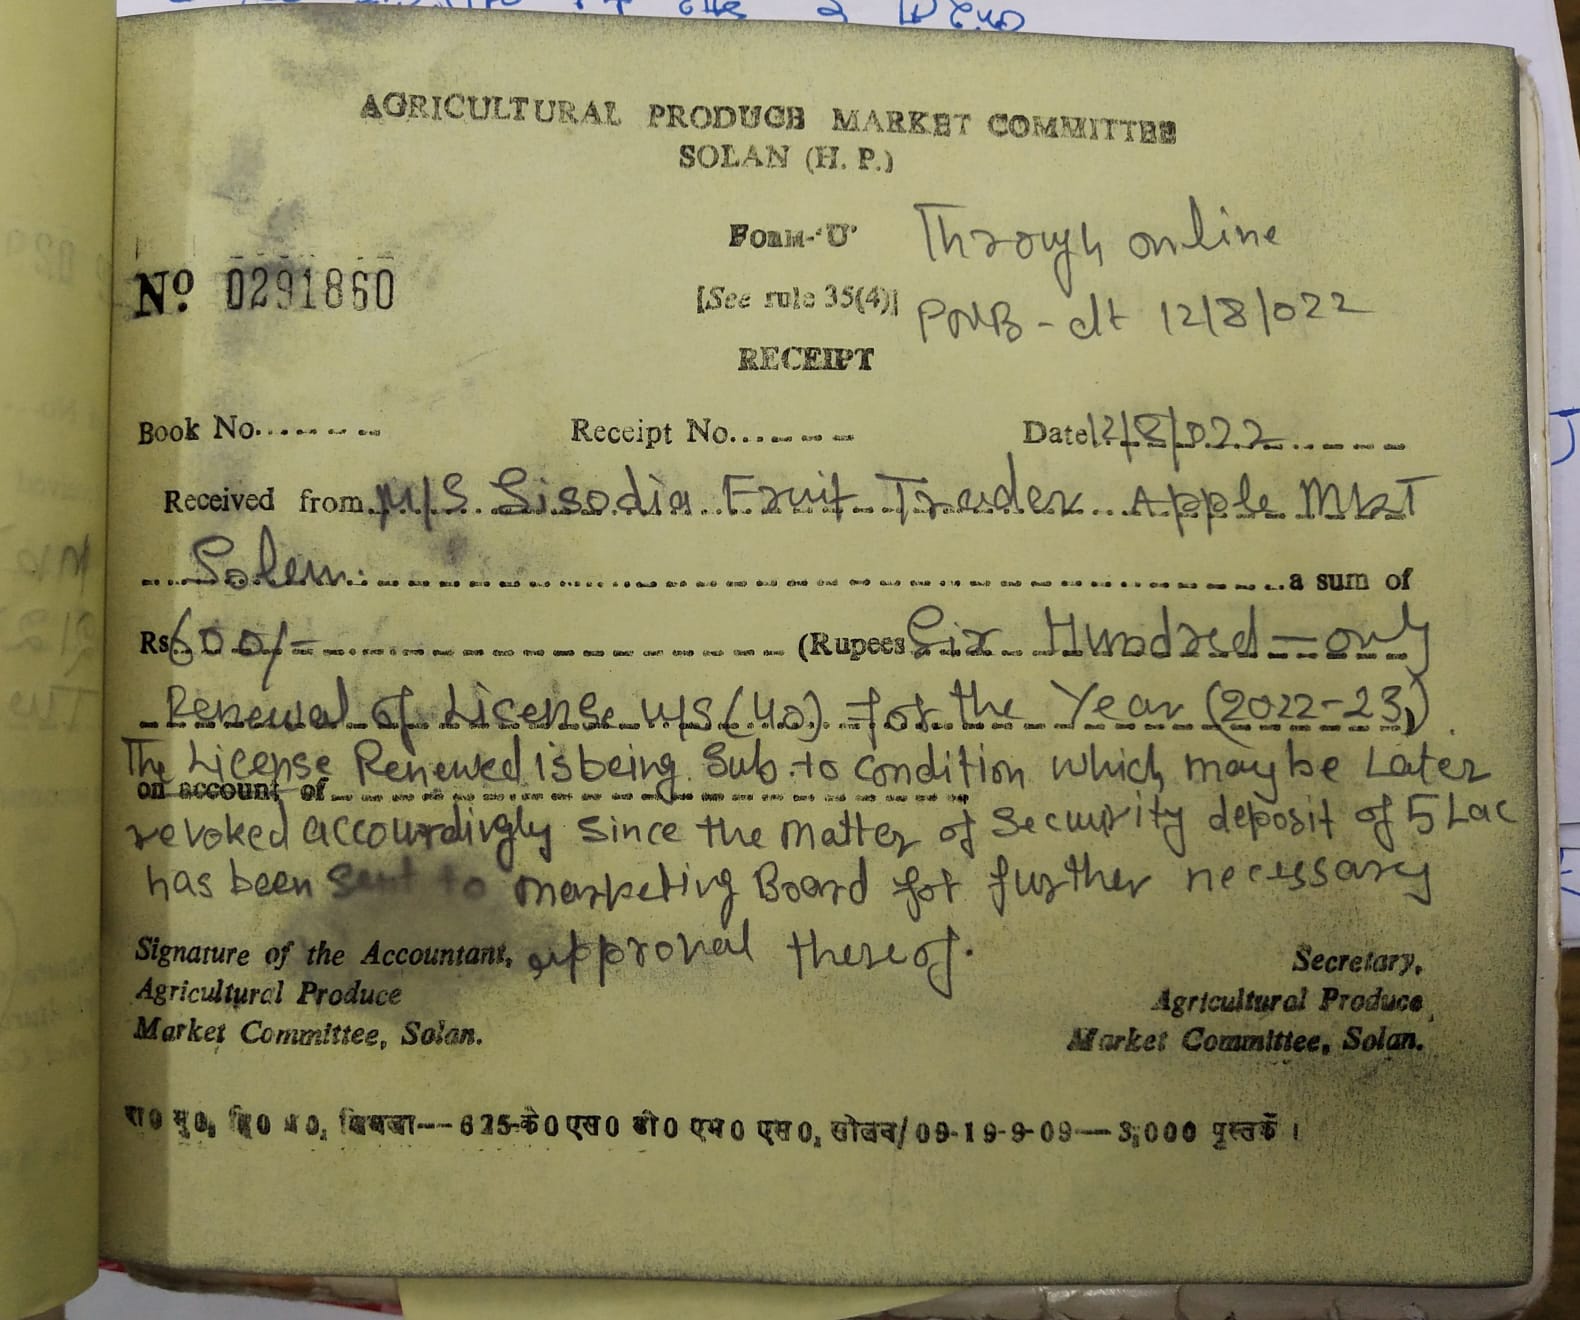 AGRICULTURAL PRODUCE MARKET COMMITTEE
SOLAN (H. P.)
Form-'U' Through online
No 0291860 [See rule 35(4)] PNB - dt 12/8/022
RECEIPT
Book No........ Receipt No....... Date 12/8/022
Received from M/S Sisodia Fruit Trader Apple Mkt
Solan a sum of
Rs 600/- (Rupees Six Hundred = only
Renewal of License u/s (40) for the Year (2022-23)
The License Renewed is being Sub. to condition which may be Later
on account of
revoked accourdingly since the matter of Security deposit of 5 Lac
has been sent to Marketing Board for further necessary
approval thereof.
Signature of the Accountant,
Agricultural Produce
Market Committee, Solan.
Secretary,
Agricultural Produce
Market Committee, Solan.
रा0 मु0, हि0 प्र0, शिमला--625-के0 एस0 बी0 एम0 एस0, सोलन/09-19-9-09—3,000 पुस्तकें ।